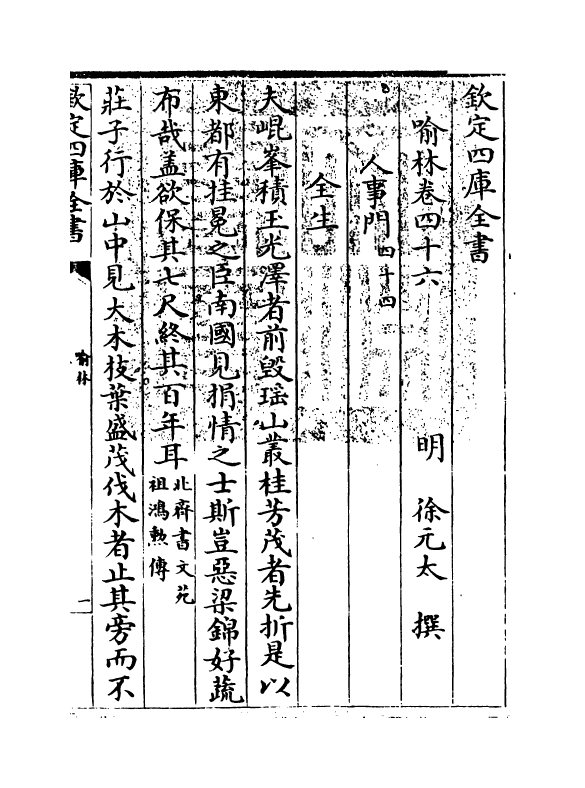 欽定四庫全書
喻林卷四十六 明 徐元太 撰
人事門四十四
全生
夫崐峯積玉光澤者前毁瑶山叢桂芳茂者先折是以
東都有挂冕之臣南國見捐情之士斯豈惡梁錦好蔬
布哉蓋欲保其七尺終其百年耳北齊書文苑
祖鴻勲傳
莊子行於山中見大木枝葉盛茂伐木者止其旁而不
欽定四庫全書
喻林
一